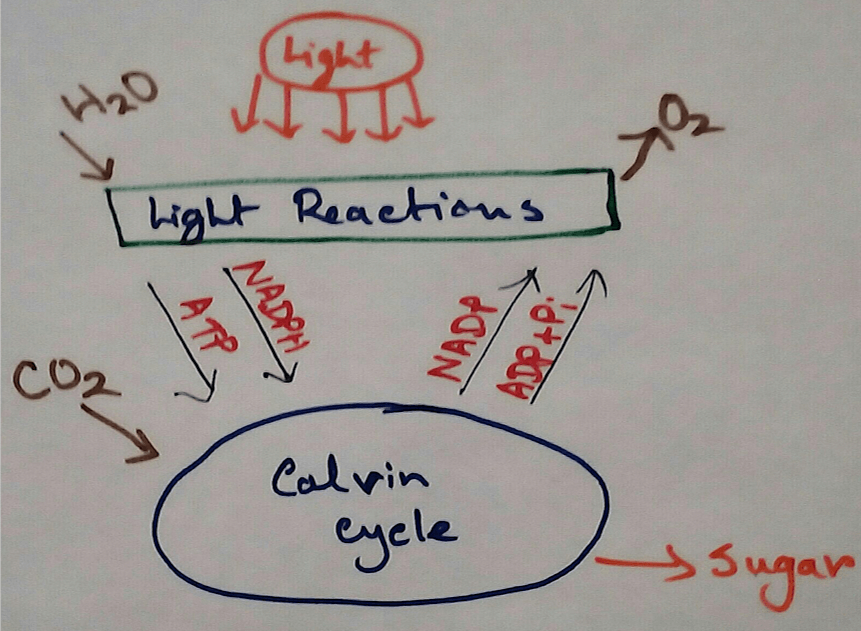 Light
H2O
O2
Light Reactions
ATP
NADPH
NADP
ADP+Pi
CO2
Calvin
cycle
Sugar